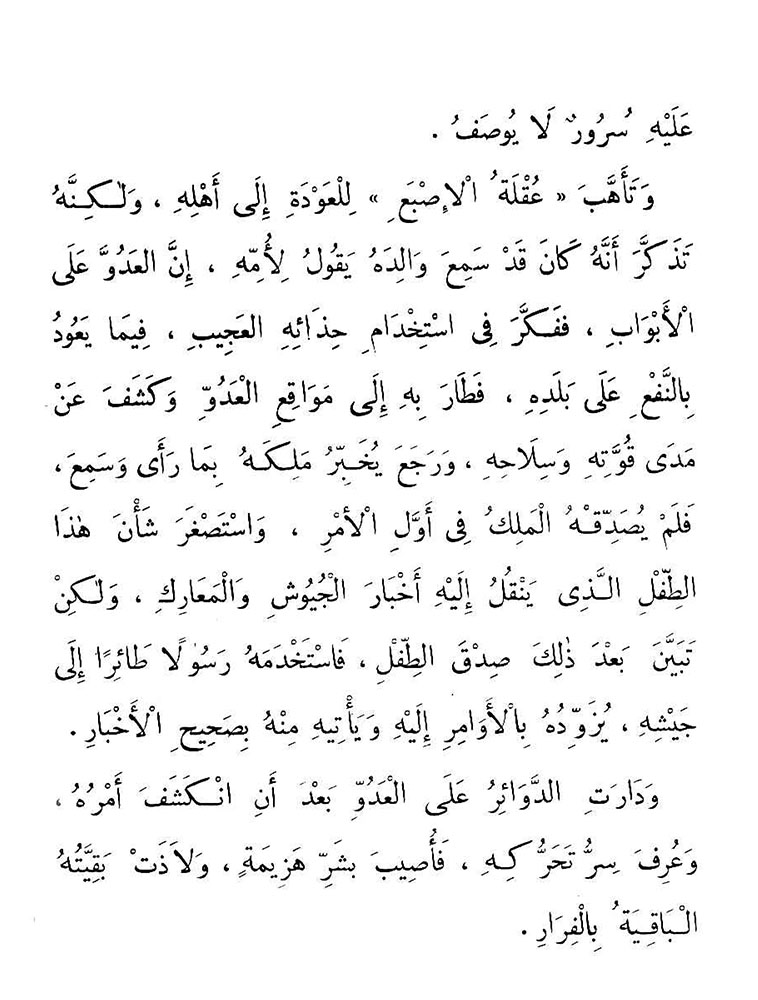 عَلَيْهِ سُرُورٌ لَا يُوصَفُ .
وَتَأَهَّبَ « عُقْلَةُ الْإِصْبَعِ » لِلْعَوْدَةِ إِلَى أَهْلِهِ ، وَلٰكِنَّهُ
تَذَكَّرَ أَنَّهُ كَانَ قَدْ سَمِعَ وَالِدَهُ يَقُولُ لِأُمِّهِ ، إِنَّ العَدُوَّ عَلَى
الْأَبْوَابِ ، فَفَكَّرَ فِى اسْتِخْدَامِ حِذَائِهِ العَجِيبِ ، فِيمَا يَعُودُ
بِالنَّفْعِ عَلَى بَلَدِهِ ، فَطَارَ بِهِ إِلَى مَوَاقِعِ الْعَدُوِّ وَكَشَفَ عَنْ
مَدَى قُوَّتِهِ وَسِلَاحِهِ ، وَرَجَعَ يُخَبِّرُ مَلِكَهُ بِمَا رَأَى وَسَمِعَ ،
فَلَمْ يُصَدِّقْهُ الْمَلِكُ فِى أَوَّلِ الْأَمْرِ ، وَاسْتَصْغَرَ شَأْنَ هٰذَا
الطِّفْلِ الَّذِى يَنْقُلُ إِلَيْهِ أَخْبَارَ الْجُيُوشِ وَالْمَعَارِكِ ، وَلٰكِنْ
تَبَيَّنَ بَعْدَ ذٰلِكَ صِدْقَ الطِّفْلِ ، فَاسْتَخْدَمَهُ رَسُوْلًا طَائِرًا إِلَى
جَيْشِهِ ، يُزَوِّدُهُ بِالْأَوَامِرِ إِلَيْهِ وَيَأْتِيهِ مِنْهُ بِصَحِيحِ الْأَخْبَارِ .
وَدَارَتِ الدَّوَائِرُ عَلَى الْعَدُوِّ بَعْدَ أَنِ انْكَشَفَ أَمْرُهُ ،
وَعُرِفَ سِرُّ تَحَرُّكِهِ ، فَأُصِيبَ بِشَرِّ هَزِيمَةٍ ، وَلَاذَتْ بَقِيَّتُهُ
الْبَاقِيَةُ بِالْفِرَارِ .